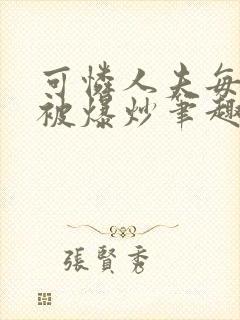 可憐人夫每
被爆炒筆趣
張賢秀